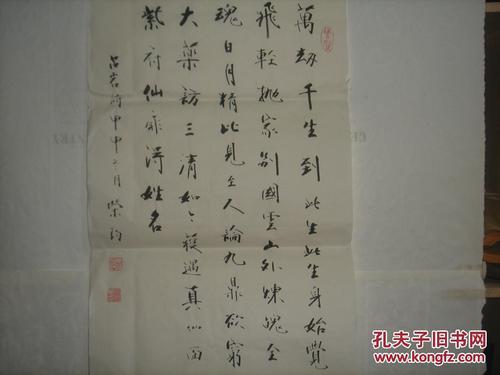 萬劫千生到此生此生身始覺
飛輕抛家別國雲山外煉魄全
魂日月精比見至人論九鼎欲窮
大藥訪三清如今獲遇真仙面
紫府仙扉得姓名
呂岩詩甲申六月榮
孔夫子旧书网
www.kongfz.com